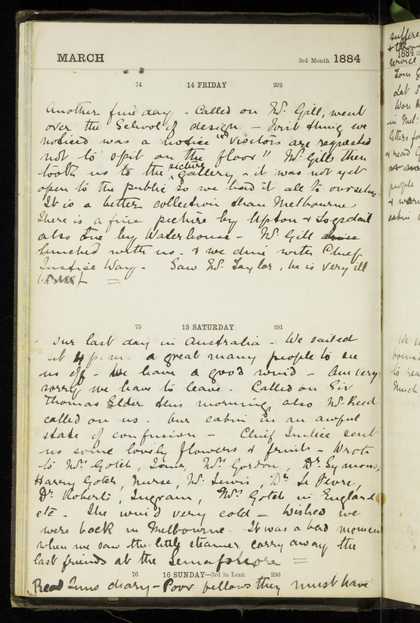 MARCH 3rd Month 1884
74 14 FRIDAY 292
Another fine day - Called on Mr. Gill, went
over the School of design - First thing we
noticed was a notice "Visitors are requested
not to spit on the floor" Mr. Gill then
took us to the picture gallery - it was not yet
open to the public so we had it all to ourselves
It is a better collection than Melbourne
There is a fine picture by Upton &
also one by Waterhouse - Mr. Gill
lunched with us. & we dine with Chief
Justice Way. Saw Mr. Taylor, he is very ill
75 15 SATURDAY 291
- Our last day in Australia - We sailed
at 4 p.m. a great many people to see
us off - We have a good wind - Am very
sorry we have to leave. Called on Sir
Thomas Elder this morning, also Mr. Reed
called on us. Our cabin in an awful
state of confusion - Chief Justice sent
us some lovely flowers & fruit - Wrote
to Mr. Gotch, Mrs. Gordon, Dr. Symons,
Harry Gotch, Nurse, Mr. Lewis, Dr. Le Fevre,
Dr. Robert, Ingram, Mrs. Gotch in England
etc. The wind very cold - Wished we
were back in Melbourne - It was a bad moment
when we saw the little steamer carry away the
last friends at the Semaphore =
76 16 SUNDAY—3rd in Lent 290
Read Junos diary - Poor fellows they must have